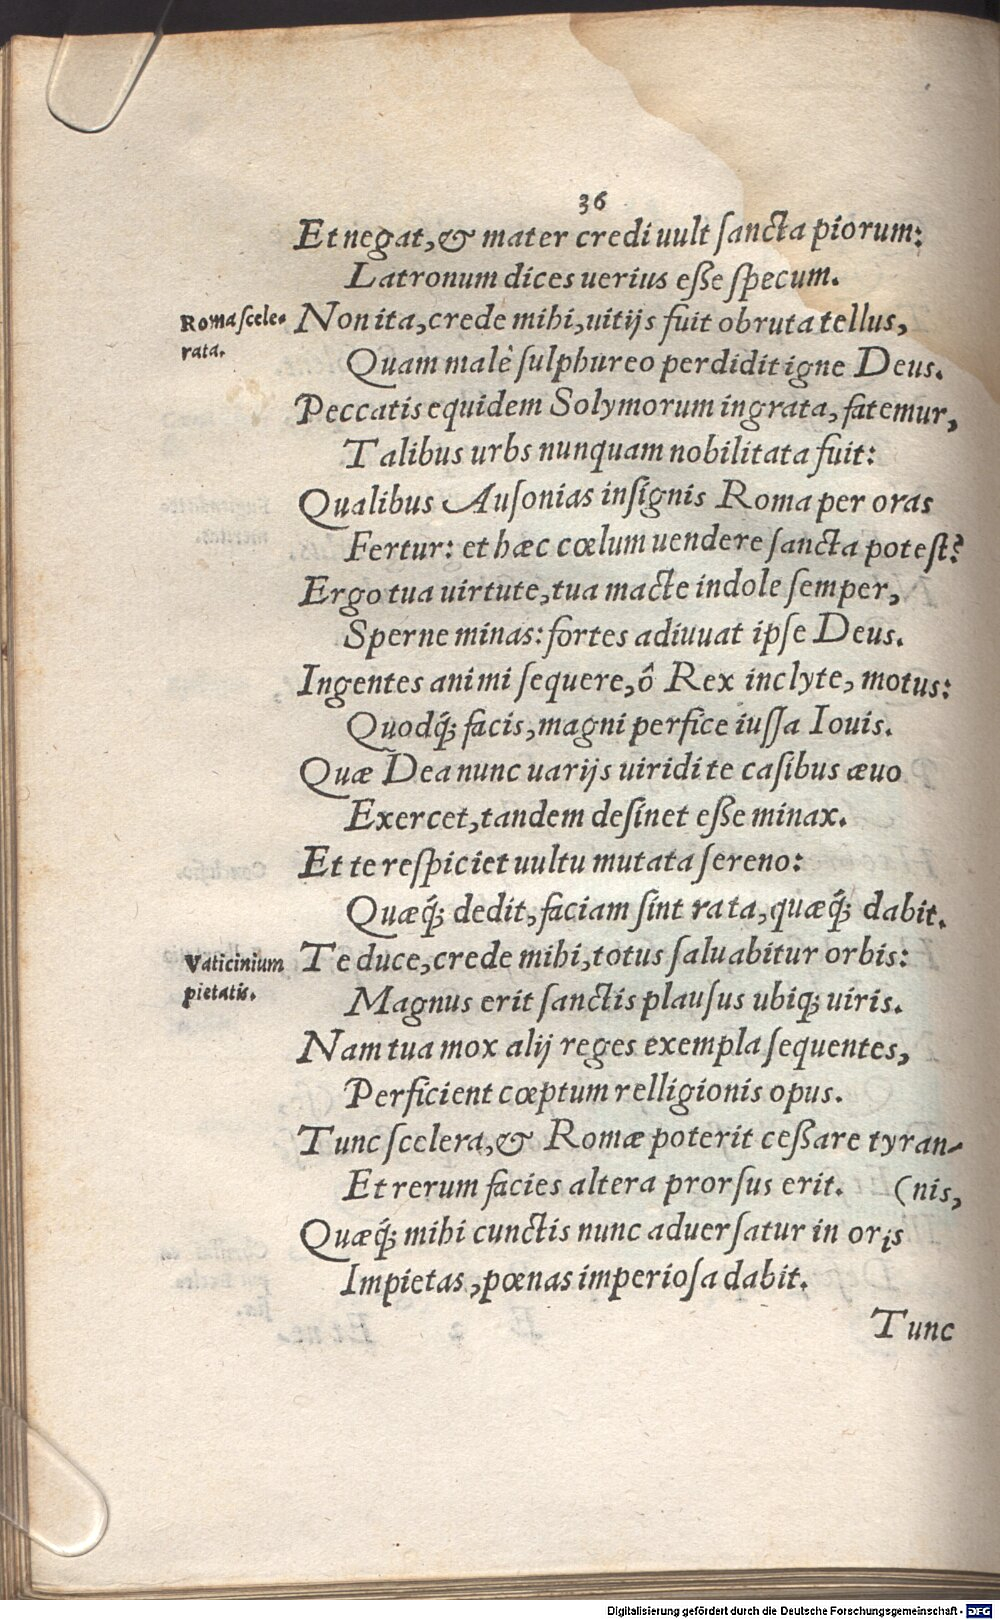 36
Et negat, & mater credi uult sancta piorum:
Latronum dices uerius eße specum.
Roma scele-
rata.
Non ita, crede mihi, uitijs fuit obruta tellus,
Quam malè sulphureo perdidit igne Deus.
Peccatis equidem Solymorum ingrata, fatemur,
Talibus urbs nunquam nobilitata fuit:
Qualibus Ausonias insignis Roma per oras
Fertur: et hæc cœlum uendere sancta potest?
Ergo tua uirtute, tua macte indole semper,
Sperne minas: fortes adiuuat ipse Deus.
Ingentes animi sequere, ô Rex inclyte, motus:
Quodq́; facis, magni perfice iussa Iouis.
Quæ Dea nunc uarijs uiridi te casibus æuo
Exercet, tandem desinet eße minax.
Et te respiciet uultu mutata sereno:
Quæq́; dedit, faciam sint rata, quæq́; dabit.
Vaticinium
pietatis.
Te duce, crede mihi, totus saluabitur orbis:
Magnus erit sanctis plausus ubiq; uiris.
Nam tua mox alij reges exempla sequentes,
Perficient cœptum relligionis opus.
Tunc scelera, & Romæ poterit ceßare tyran-
Et rerum facies altera prorsus erit. (nis,
Quæq́; mihi cunctis nunc aduersatur in oris
Impietas, pœnas imperiosa dabit.
Tunc
Digitalisierung gefördert durch die Deutsche Forschungsgemeinschaft - DFG